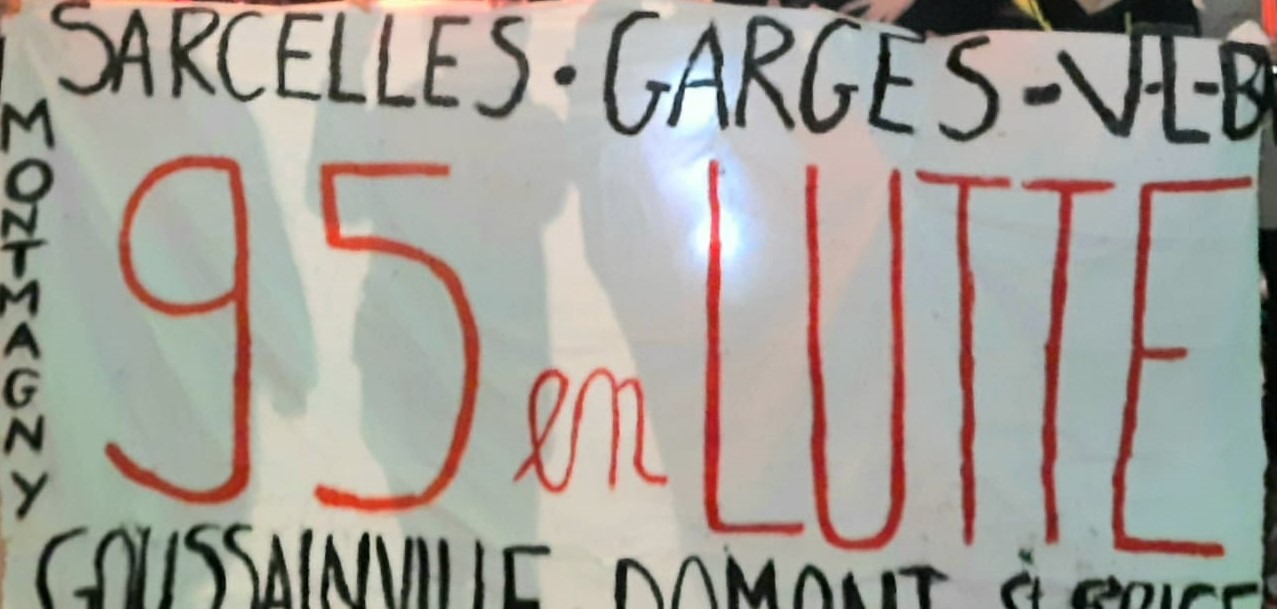 SARCELLES • GARGES - V-L-B
MONTMAGNY
95 en LUTTE
GOUSSAINVILLE DOMONT St BRICE